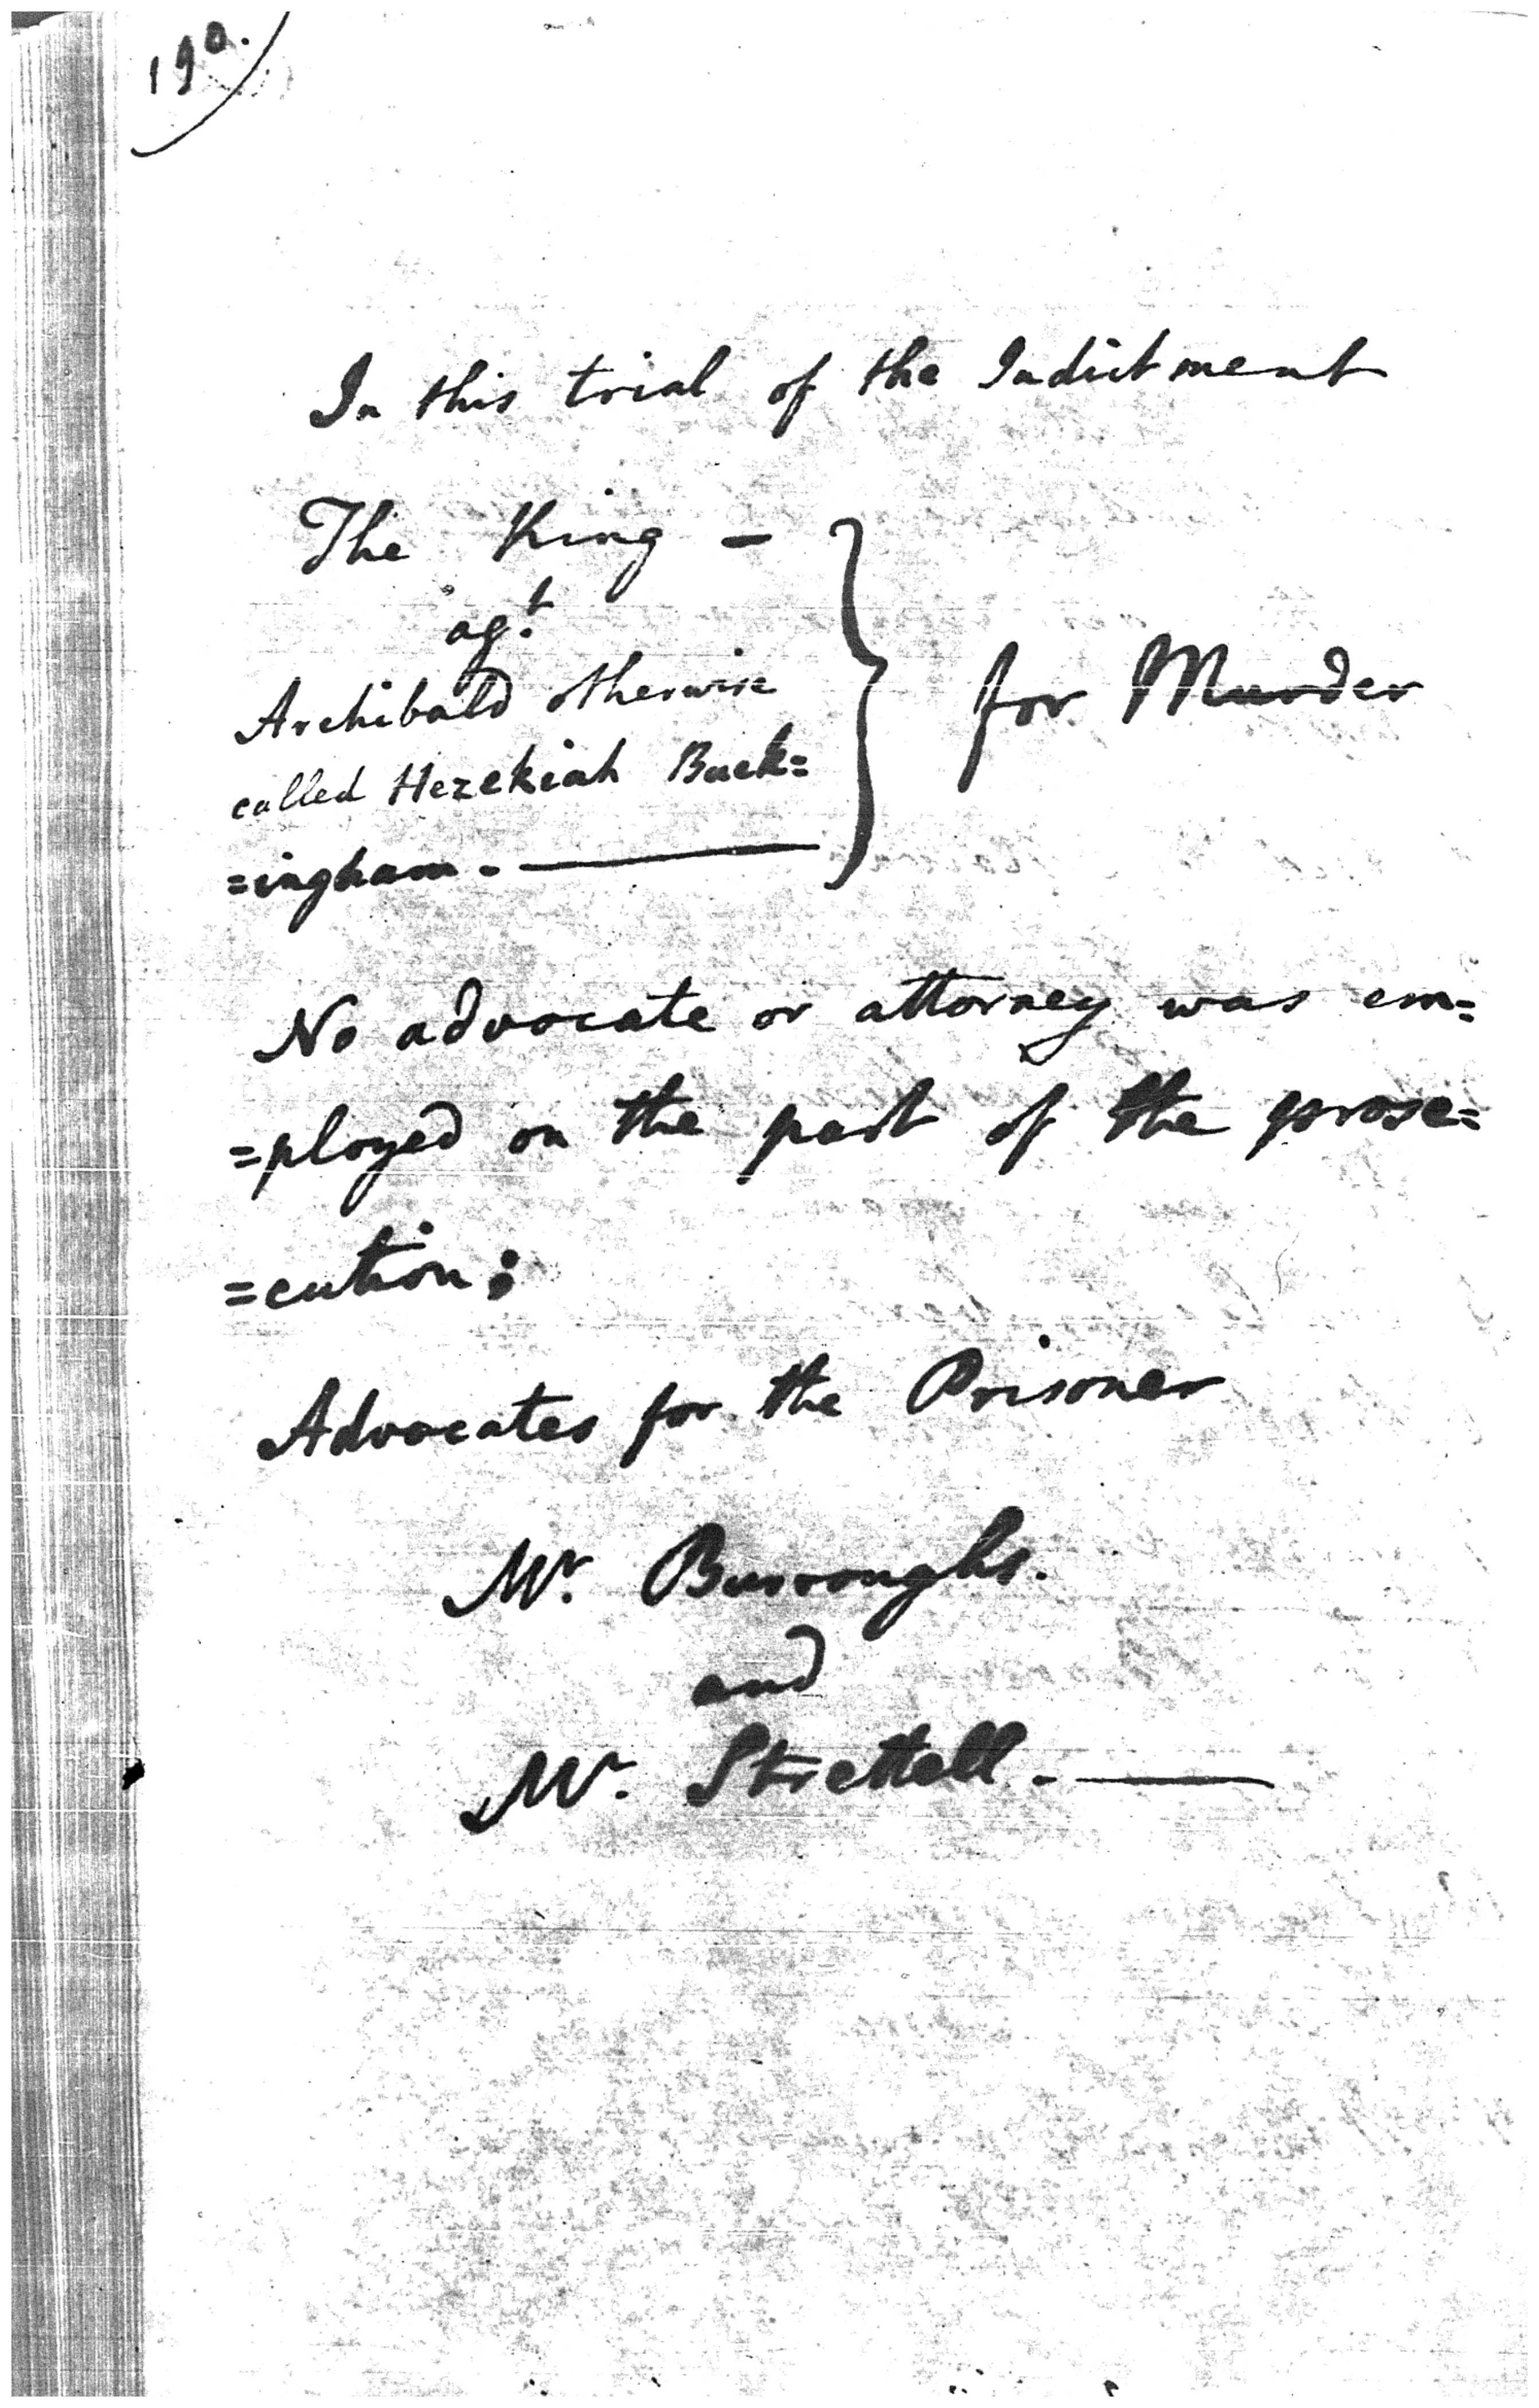 190.
In this trial of the Indictment
The King –
agt.
Archibald otherwise
called Hezekiah Buck=
=ingham. —
} for Murder
No advocate or attorney was em=
=ployed on the part of the prose=
=cution;
Advocates for the Prisoner
Mr. Burroughs.
and
Mr. Strettell. —